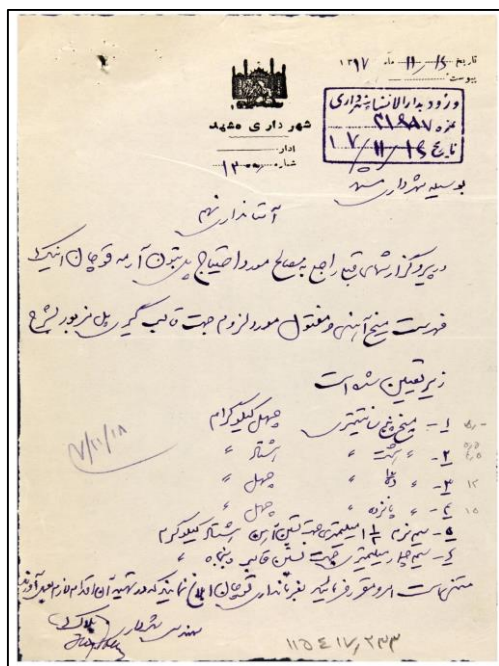 تاریخ ۱۵ / ۱۱ ماه ۱۳۱۷
پیوست
شهرداری مشهد
اداره
شماره ۱۳۰۰۰
ورود بدارالانشاء شهرداری
نمره ۲۱۹۸۷
تاریخ ۱۶ / ۱۱ / ۱۷
بوسیله شهرداری مشهد
آستانداری نهم
در پیرو گزارشهای قبلی راجع بمصالح مورد احتیاج پل بتون آرمه قوچان اینک
فهرست میخ آهنی و مفتول مورد لزوم جهت قالب گیری پل مزبور بشرح
زیر تعیین شده است
۱- میخ پنج سانتیمتری چهل کیلوگرام
۲- " هشت " هشتاد "
۳- " " چهل "
۴- " پانزده " چهل "
۵- سیم نرم ۱ ۱/۲ میلیمتری جهت بستن آرمه هشتاد کیلوگرام
۶- سیم چهار میلیمتری جهت بستن قالب پنجاه "
متمنی است امر و مقرر فرمائید بفرمانداری قوچان ابلاغ نمایند که در تهیه آن اقدام لازم بعمل آورند
مهندس شهرداری
۷/۱۱/۱۸
۱۱۵۴۱۷٫۲۳۳